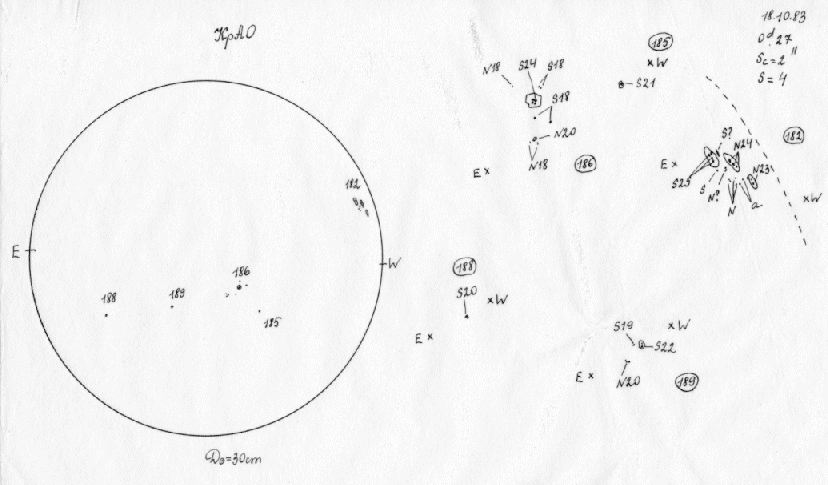 КрАО
18.10.83
0ᵈ.27
Sc=2"
S=4
185
×W
S21
N18
S24
S18
S18
N20
N18
186
E×
S?
N24
182
E×
N23
S25
S
N?
N
a
×W
182
E
W
186
188
189
185
188
S20
×W
E×
S19
×W
S22
E×
N20
189
D⊙=30cm